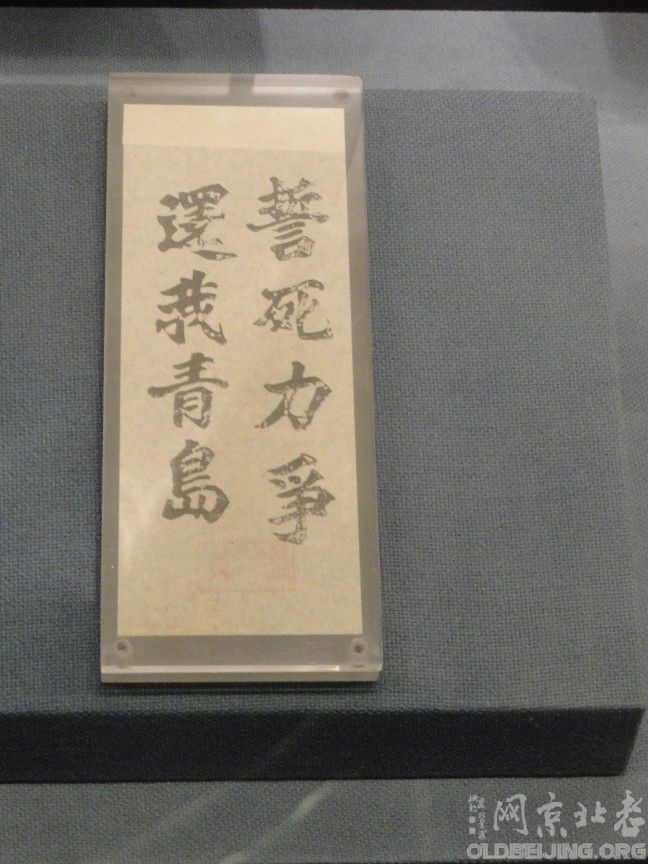 誓死力爭
還我青島
老北京网
OLDBEIJING.ORG